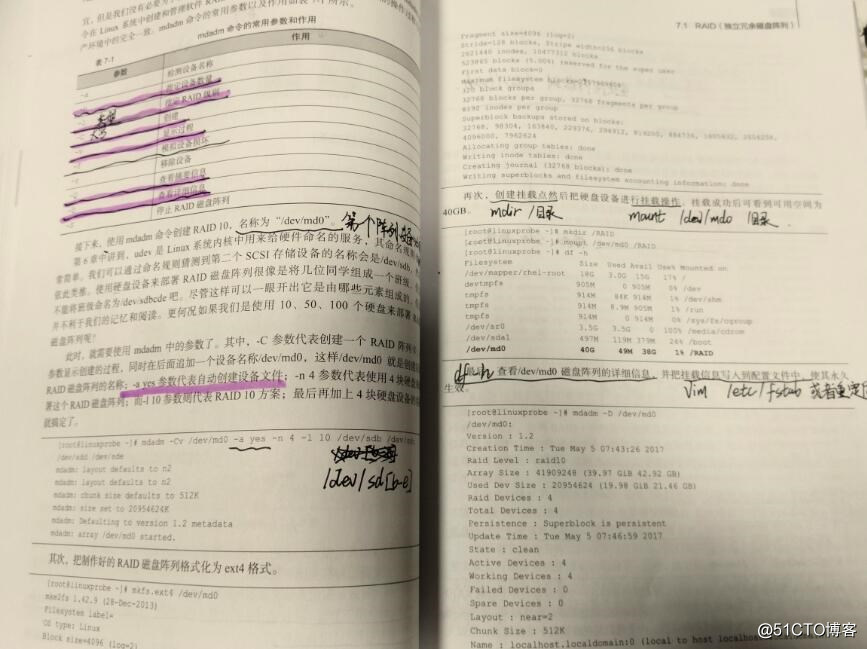 在 Linux 系统中创建和管理软件 RAID
产环境中的完全一致。mdadm 命令的常用参数以及作用如表 7-1 所示。
表 7-1
mdadm 命令的常用参数和作用
参数
作用
-a
检测设备名称
指定设备数量
指定 RAID 级别
创建
显示过程
模拟设备损坏
移除设备
查看摘要信息
查看详细信息
停止 RAID 磁盘阵列
接下来，使用 mdadm 命令创建 RAID 10，名称为“/dev/md0”。
第 6 章中讲到，udev 是 Linux 系统内核中用来给硬件命名的服务，其命名规则
常简单。我们可以通过命名规则猜测到第二个 SCSI 存储设备的名称会是/dev/sdb，
依此类推。使用硬盘设备来部署 RAID 磁盘阵列很像是将几位同学组成一个班级，
不能将班级命名为/dev/sdbcde 吧。尽管这样可以一眼开出它是由哪些元素组成的，
并不利于我们的记忆和阅读。更何况如果我们是使用 10、50、100 个硬盘来部署
磁盘阵列呢？
此时，就需要使用 mdadm 中的参数了。其中，-C 参数代表创建一个 RAID 阵列
参数显示创建的过程，同时在后面追加一个设备名称/dev/md0，这样/dev/md0 就是创建
RAID 磁盘阵列的名称；-a yes 参数代表自动创建设备文件；-n 4 参数代表使用 4 块硬盘
署这个 RAID 磁盘阵列；而-l 10 参数则代表 RAID 10 方案；最后再加上 4 块硬盘设备的
就搞定了。
[root@linuxprobe ~]# mdadm -Cv /dev/md0 -a yes -n 4 -l 10 /dev/sdb /dev/sdc
/dev/sdd /dev/sde
/dev/sd[b-e]
mdadm: layout defaults to n2
mdadm: layout defaults to n2
mdadm: chunk size defaults to 512K
mdadm: size set to 20954624K
mdadm: Defaulting to version 1.2 metadata
mdadm: array /dev/md0 started.
其次，把制作好的 RAID 磁盘阵列格式化为 ext4 格式。
[root@linuxprobe ~]# mkfs.ext4 /dev/md0
mke2fs 1.42.9 (28-Dec-2013)
Filesystem label=
OS type: Linux
Block size=4096 (log=2)
7.1 RAID（独立冗余磁盘阵列）
Fragment size=4096 (log=2)
Stride=128 blocks, Stripe width=256 blocks
2621440 inodes, 10477312 blocks
523865 blocks (5.00%) reserved for the super user
First data block=0
Maximum filesystem blocks=
320 block groups
32768 blocks per group, 32768 fragments per group
8192 inodes per group
Superblock backups stored on blocks:
32768, 98304, 163840, 229376, 294912, 819200, 884736, 1605632, 2654208,
4096000, 7962624
Allocating group tables: done
Writing inode tables: done
Creating journal (32768 blocks): done
Writing superblocks and filesystem accounting information: done
再次，创建挂载点然后把硬盘设备进行挂载操作，挂载成功后可看到可用空间为
40GB。
mdir /目录
mount /dev/md0 /目录
[root@linuxprobe ~]# mkdir /RAID
[root@linuxprobe ~]# mount /dev/md0 /RAID
[root@linuxprobe ~]# df -h
Filesystem Size Used Avail Use% Mounted on
/dev/mapper/rhel-root 18G 3.0G 15G 17% /
devtmpfs 905M 0 905M 0% /dev
tmpfs 914M 84K 914M 1% /dev/shm
tmpfs 914M 8.9M 905M 1% /run
tmpfs 914M 0 914M 0% /sys/fs/cgroup
/dev/sr0 3.5G 3.5G 0 100% /media/cdrom
/dev/sda1 497M 119M 379M 24% /boot
/dev/md0 40G 49M 38G 1% /RAID
df -h
查看/dev/md0 磁盘阵列的详细信息，并把挂载信息写入到配置文件中，使其永久
生效。
vim /etc/fstab 或者重定
[root@linuxprobe ~]# mdadm -D /dev/md0
/dev/md0:
Version : 1.2
Creation Time : Tue May 5 07:43:26 2017
Raid Level : raid10
Array Size : 41909248 (39.97 GiB 42.92 GB)
Used Dev Size : 20954624 (19.98 GiB 21.46 GB)
Raid Devices : 4
Total Devices : 4
Persistence : Superblock is persistent
Update Time : Tue May 5 07:46:59 2017
State : clean
Active Devices : 4
Working Devices : 4
Failed Devices : 0
Spare Devices : 0
Layout : near=2
Chunk Size : 512K
Name : localhost.localdomain:0 (local to host localhost
@51CTO博客